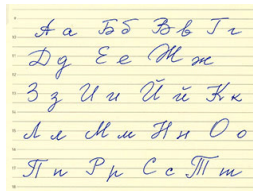 А а Б б В в Г г
Д д Е е Ж ж
З з И и Й й К к
Л л М м Н н О о
П п Р р С с Т т